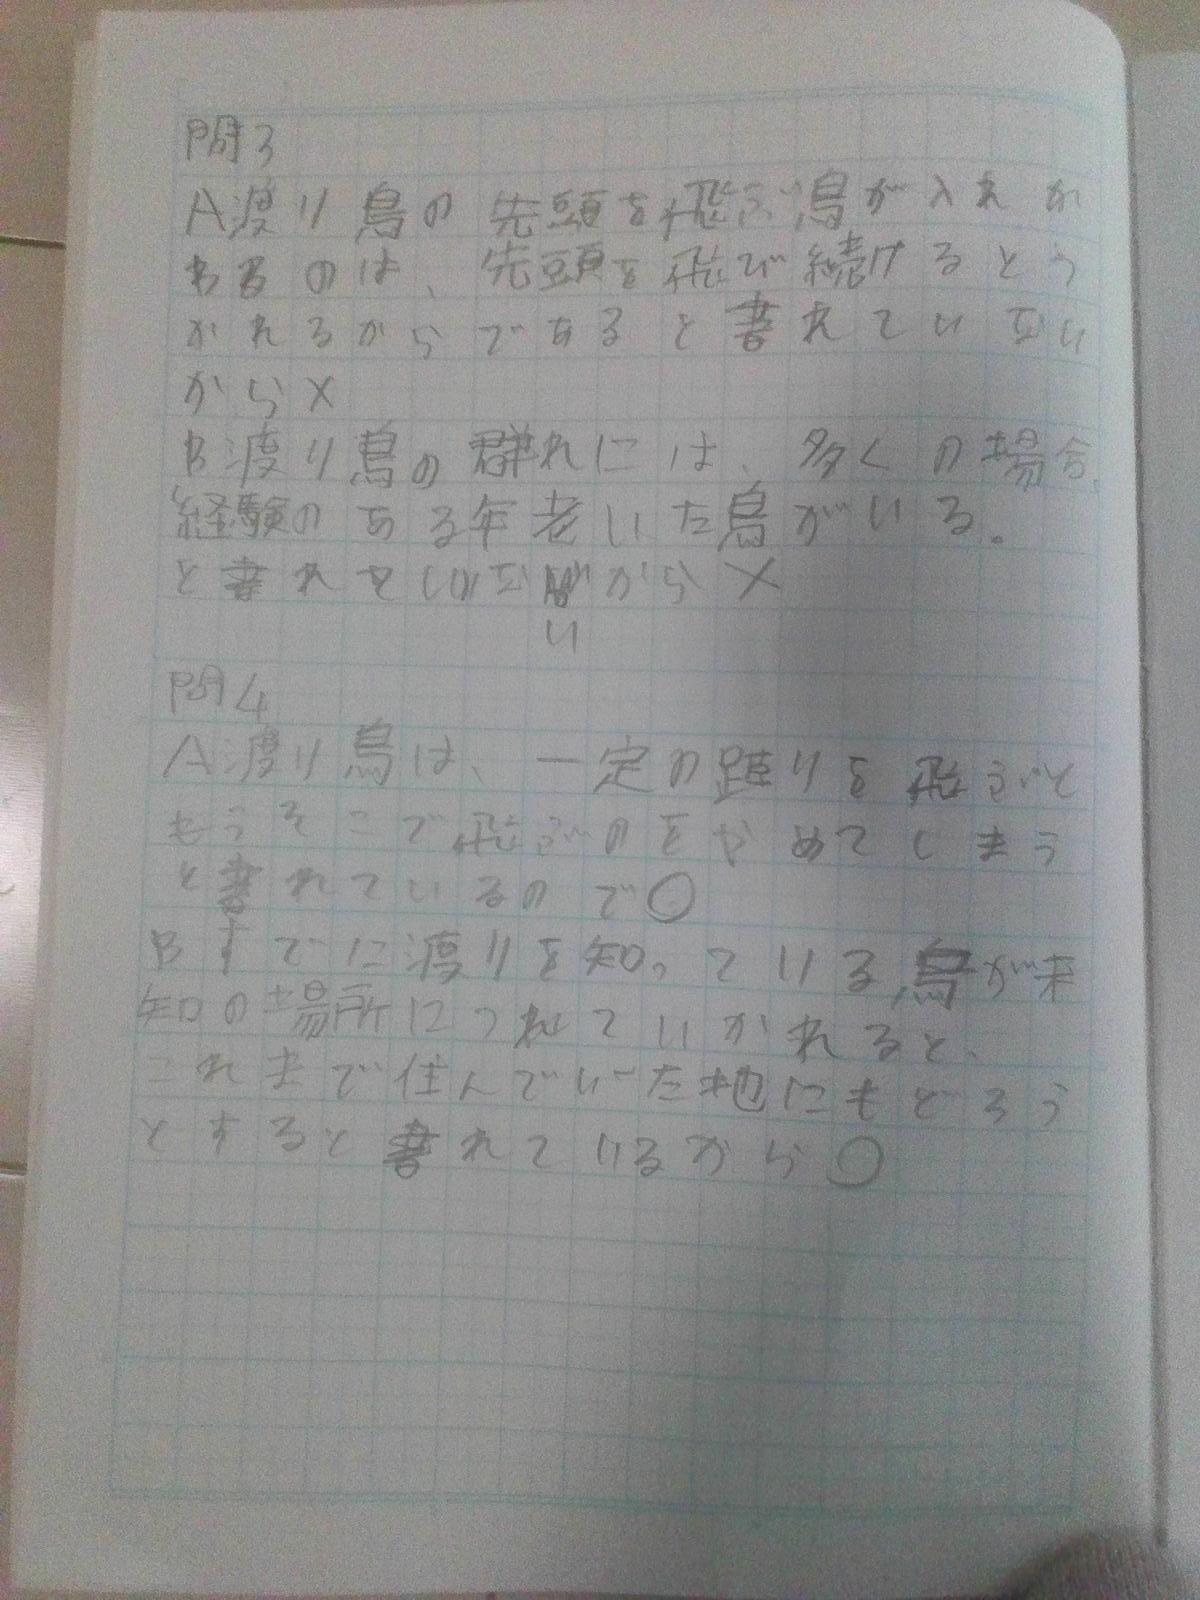 問3
A渡り鳥の先頭を飛ぶ鳥が入れか
わるのは、先頭を飛び続けるとつ
かれるからであると書れていない
から×
B渡り鳥の群れには、多くの場合、
経験のある年老いた鳥がいる。
と書れていないから×
問4
A渡り鳥は、一定の距りを飛ぶと
もうそこで飛ぶのをやめてしまう
と書れているので○
Bすでに渡りを知っている鳥が未
知の場所につれていかれると、
これまで住んでいた地にもどろう
とすると書れているから○